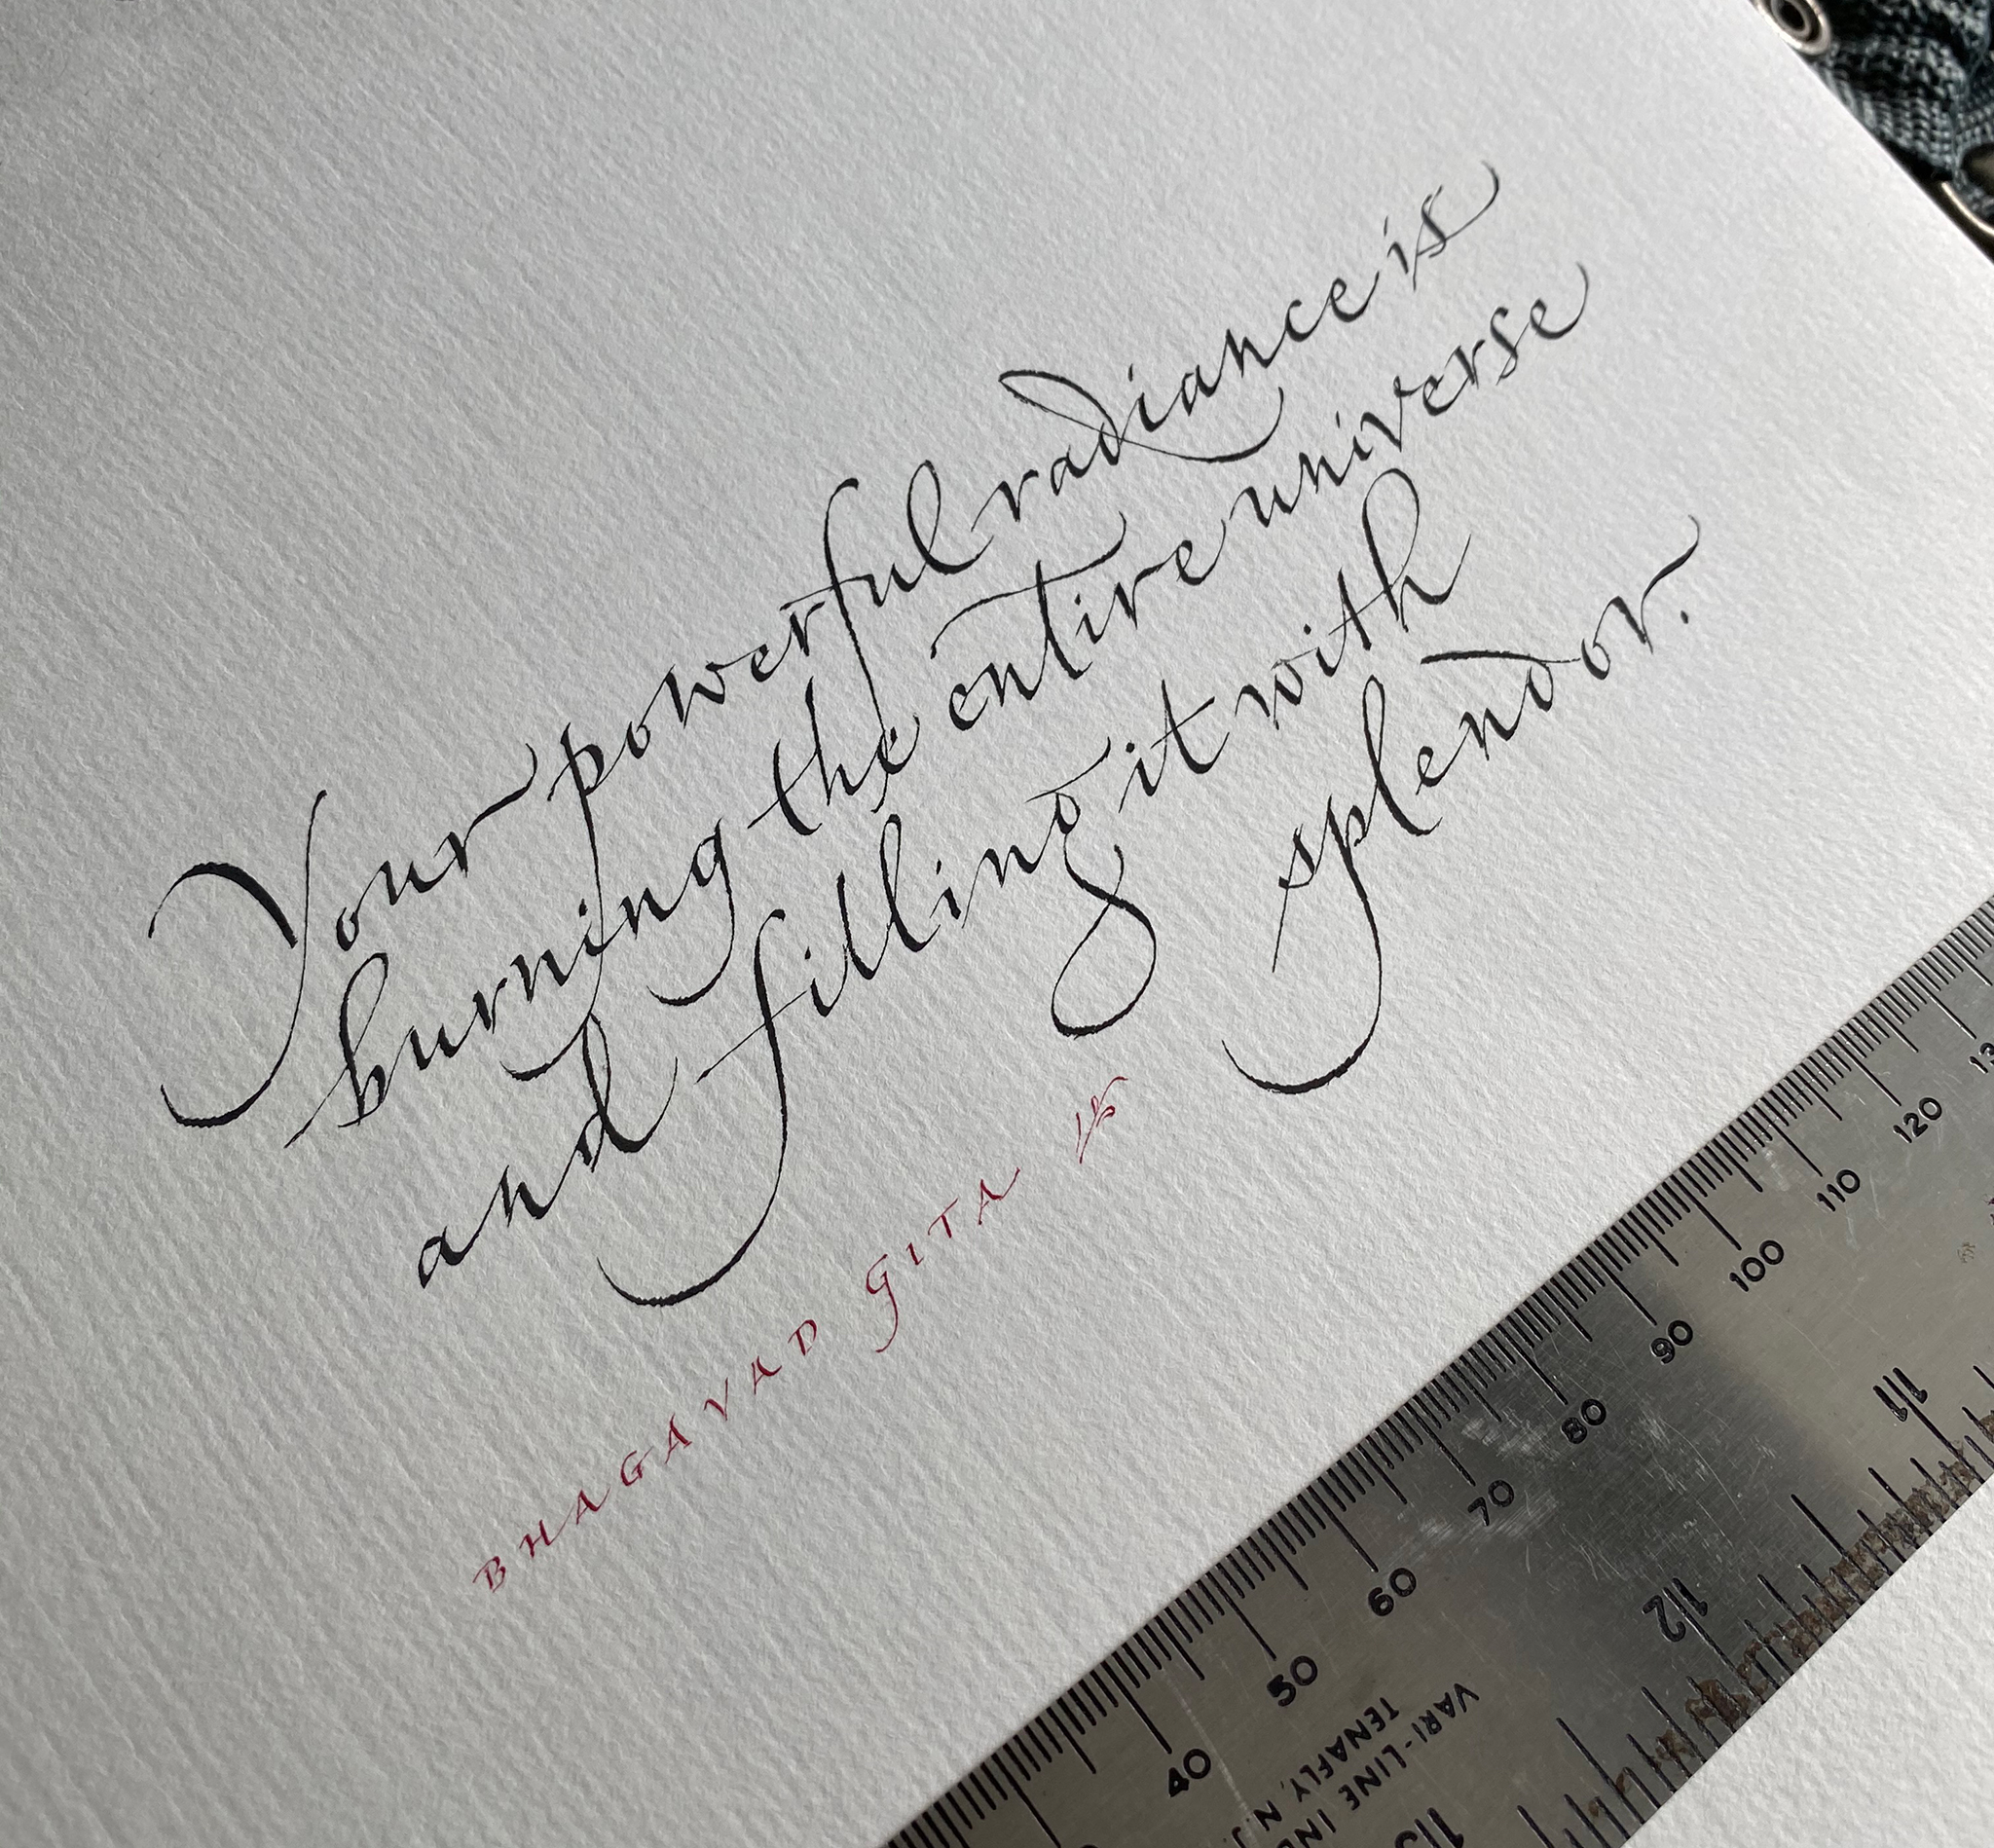 Your powerful radiance is
burning the entire universe
and filling it with
splendor.
BHAGAVAD GITA
40 50 60 70 80 90 100 110 120
11 12 13
VARI-LINE
TENAFLY, N.J.